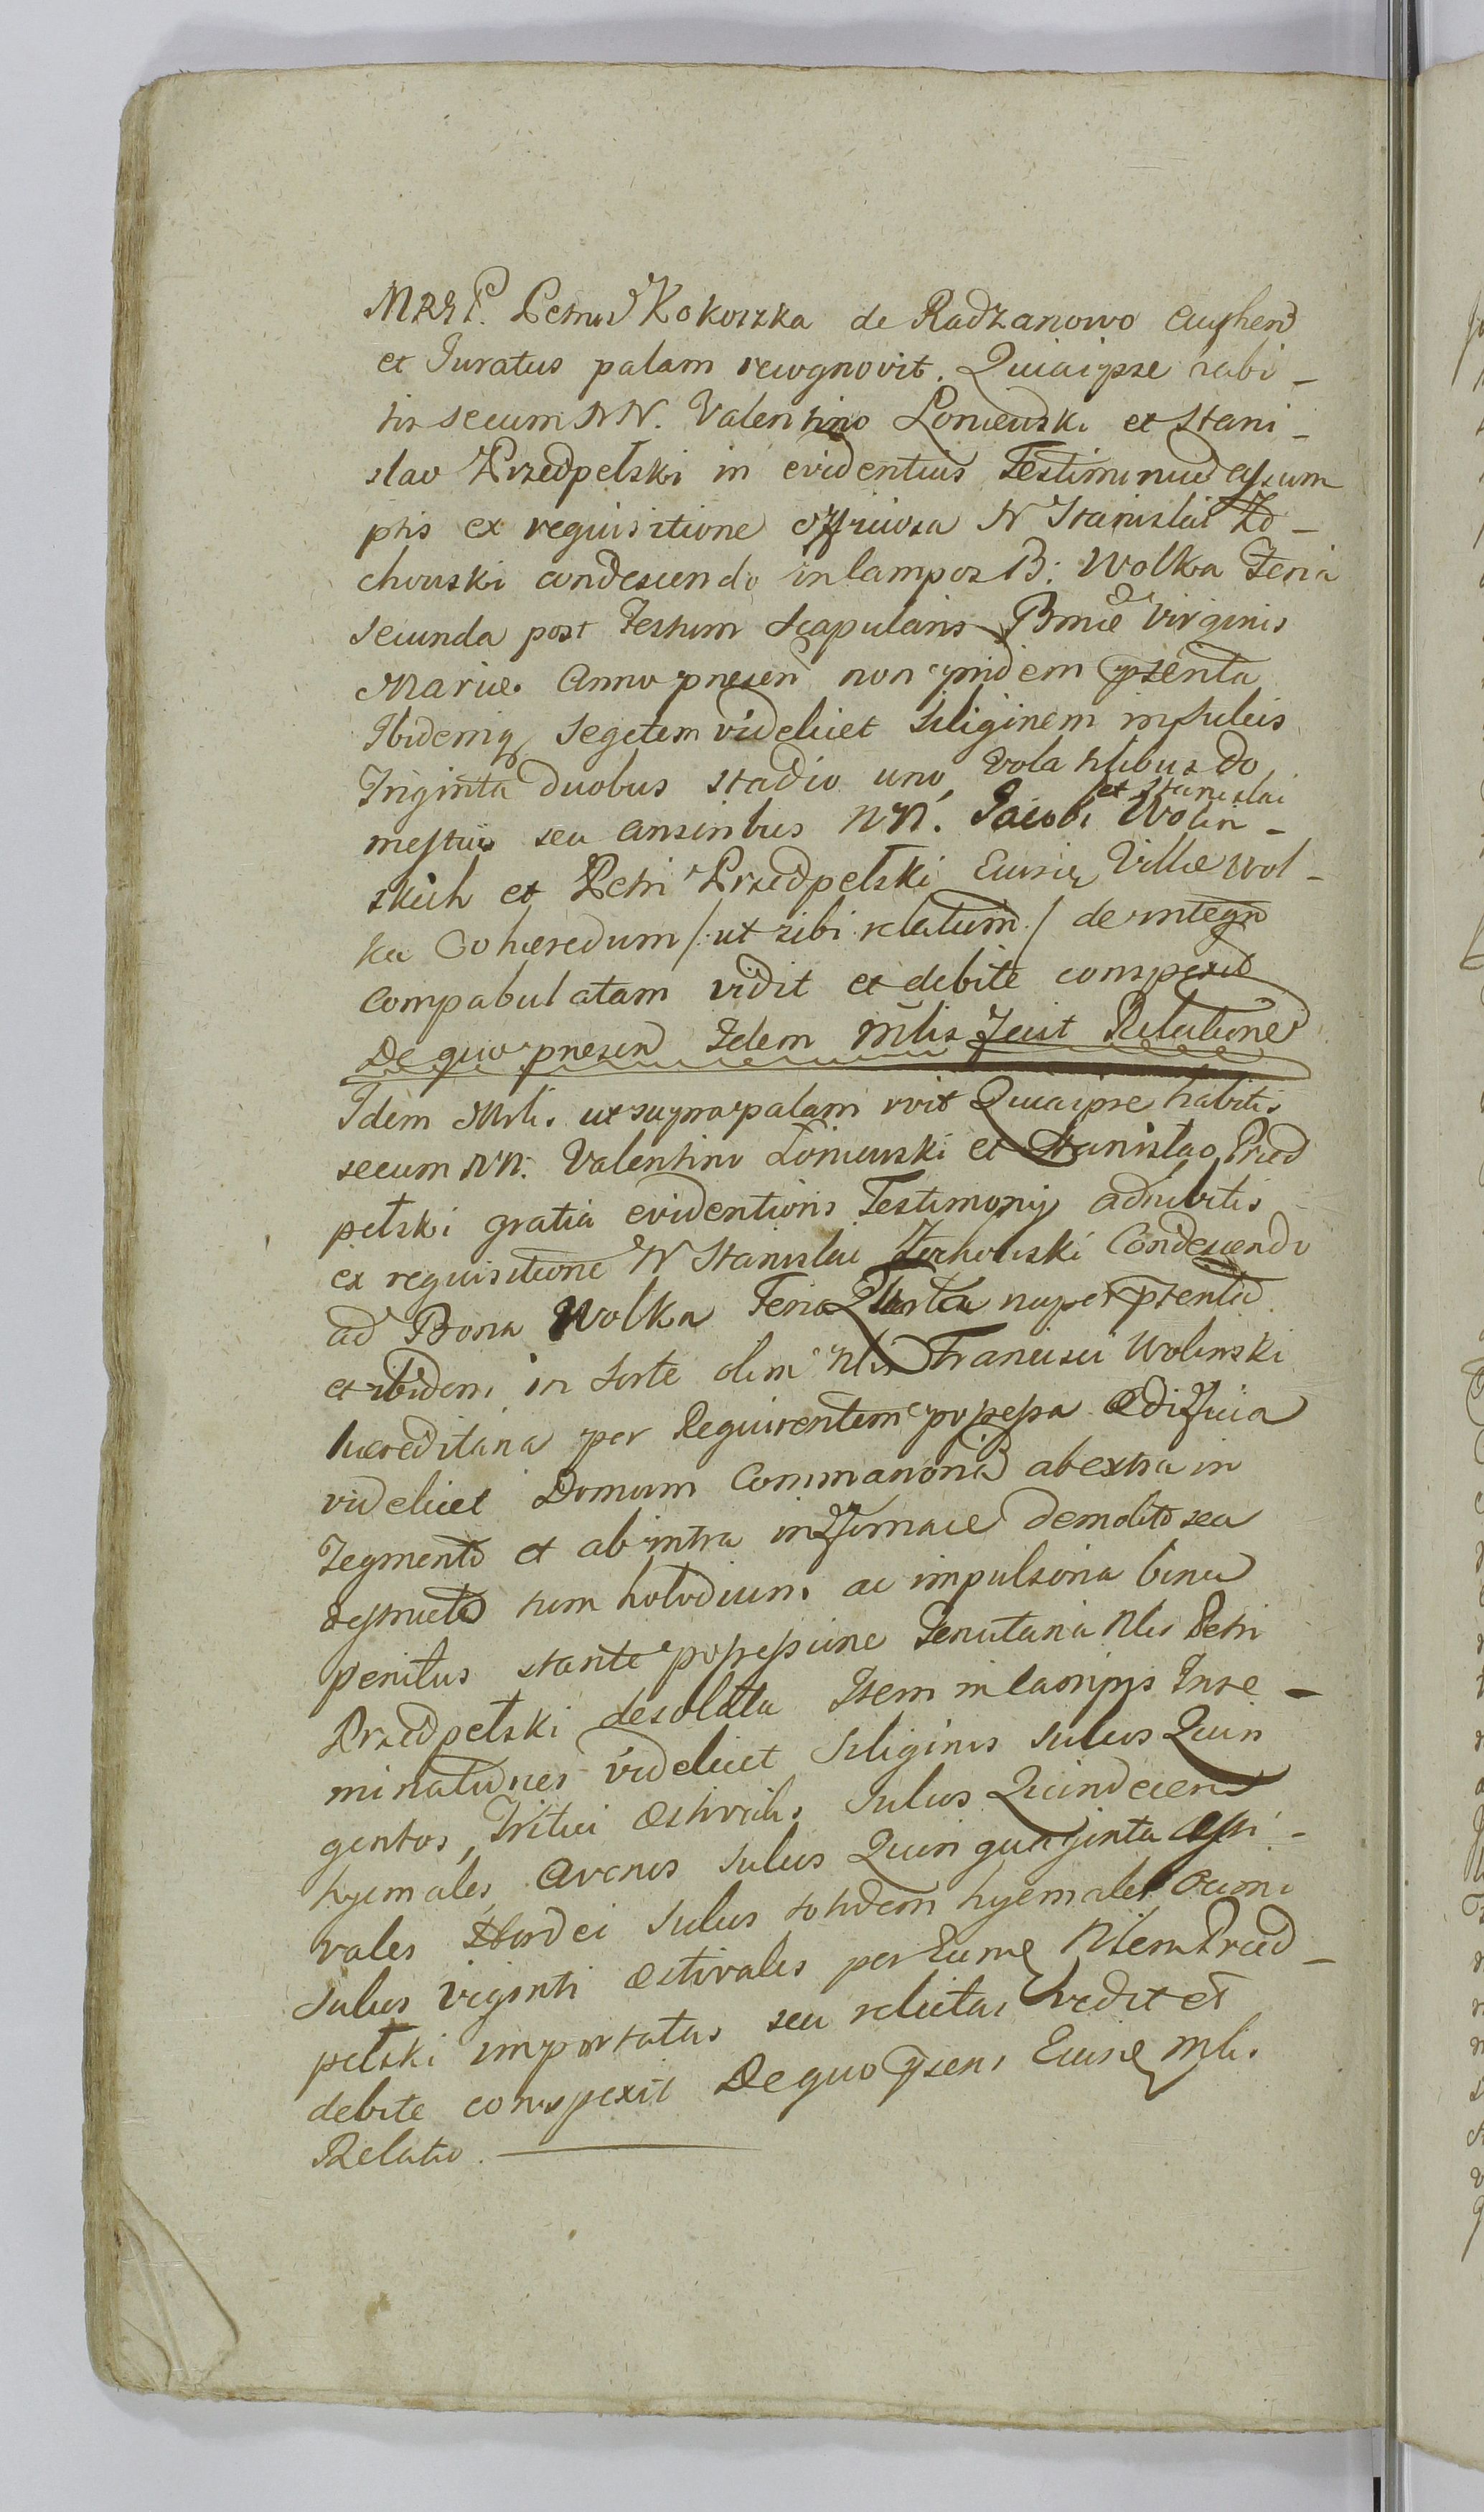 MRGP. Petrus Kokoszka de Radzanowo Authen
et Juratus palam recognovit. Quia ipse habi-
tis secum NN. Valentino Łoniewski et Stani-
slao Przedpełski in evidentius Testimoniu assum
ptis ex requisitione officiosa N Stanislai Zo-
chowski condescendo in campos B: Wolka Feria
secunda post Festum Scapularis Bmæ Virginis
Mariæ. Anno præsen non pridem psenta
Ibidemq segetem videlicet Siliginem in sulcis
Triginta duobus stadio uno, volatilibus do
mesticis seu anseribus NN. Jacobi et Stanislai Wolin-
skich et Petri Przedpełski Eiusq Villæ Wol-
ka Cohæredum /: ut sibi relatum :/ de integro
compabulatam vidit et debite conspexit
De quo præsen Idem Mlis fecit Relatione
Idem Mrlis ut supra palam rvit Quia ipse habitis
secum NN. Valentino Łoniewski et Stanislao Przed
pełski gratia evidentioris Testimonij adhibitis
ex requisitione N Stanislai Zochowski Condescendo
ad Bona Wolka Feria nuper psentid
et ibidem in Sorte olim Nlis Francisci Wolinski
hæreditaria per Requirentem possessa ædificia
videlicet Domum Commanonid ab extra in
Tegmento et ab intra in furnace demolito seu
destructo tum hołodium ac impulsoria bina
penitus stante possessione Tenutaria Nlis Petri
Przedpełski desolata Item in campis Inse-
minationes videlicet Siliginis Sulcos Quin
gentos, Tritici æstivalis Sulcos Quindecim
hyemales, Avenæ Sulcos Quinquaginta æsti-
vales Hordei Sulcos totidem hyemales
Sulcos viginti æstivales per Eumq Nlem Przed-
pełski importatas seu relictas vidit et
debite conspexit De quo psens Eiusq Mlis
Relatio.